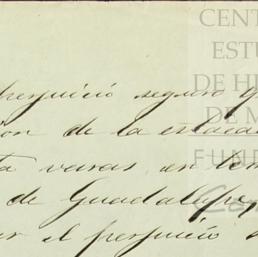 CENT
ESTU
DE HI
DE M
FUND
perjuicio seguro
de la estaca
varas en
de Guadalupe
el perjuicio